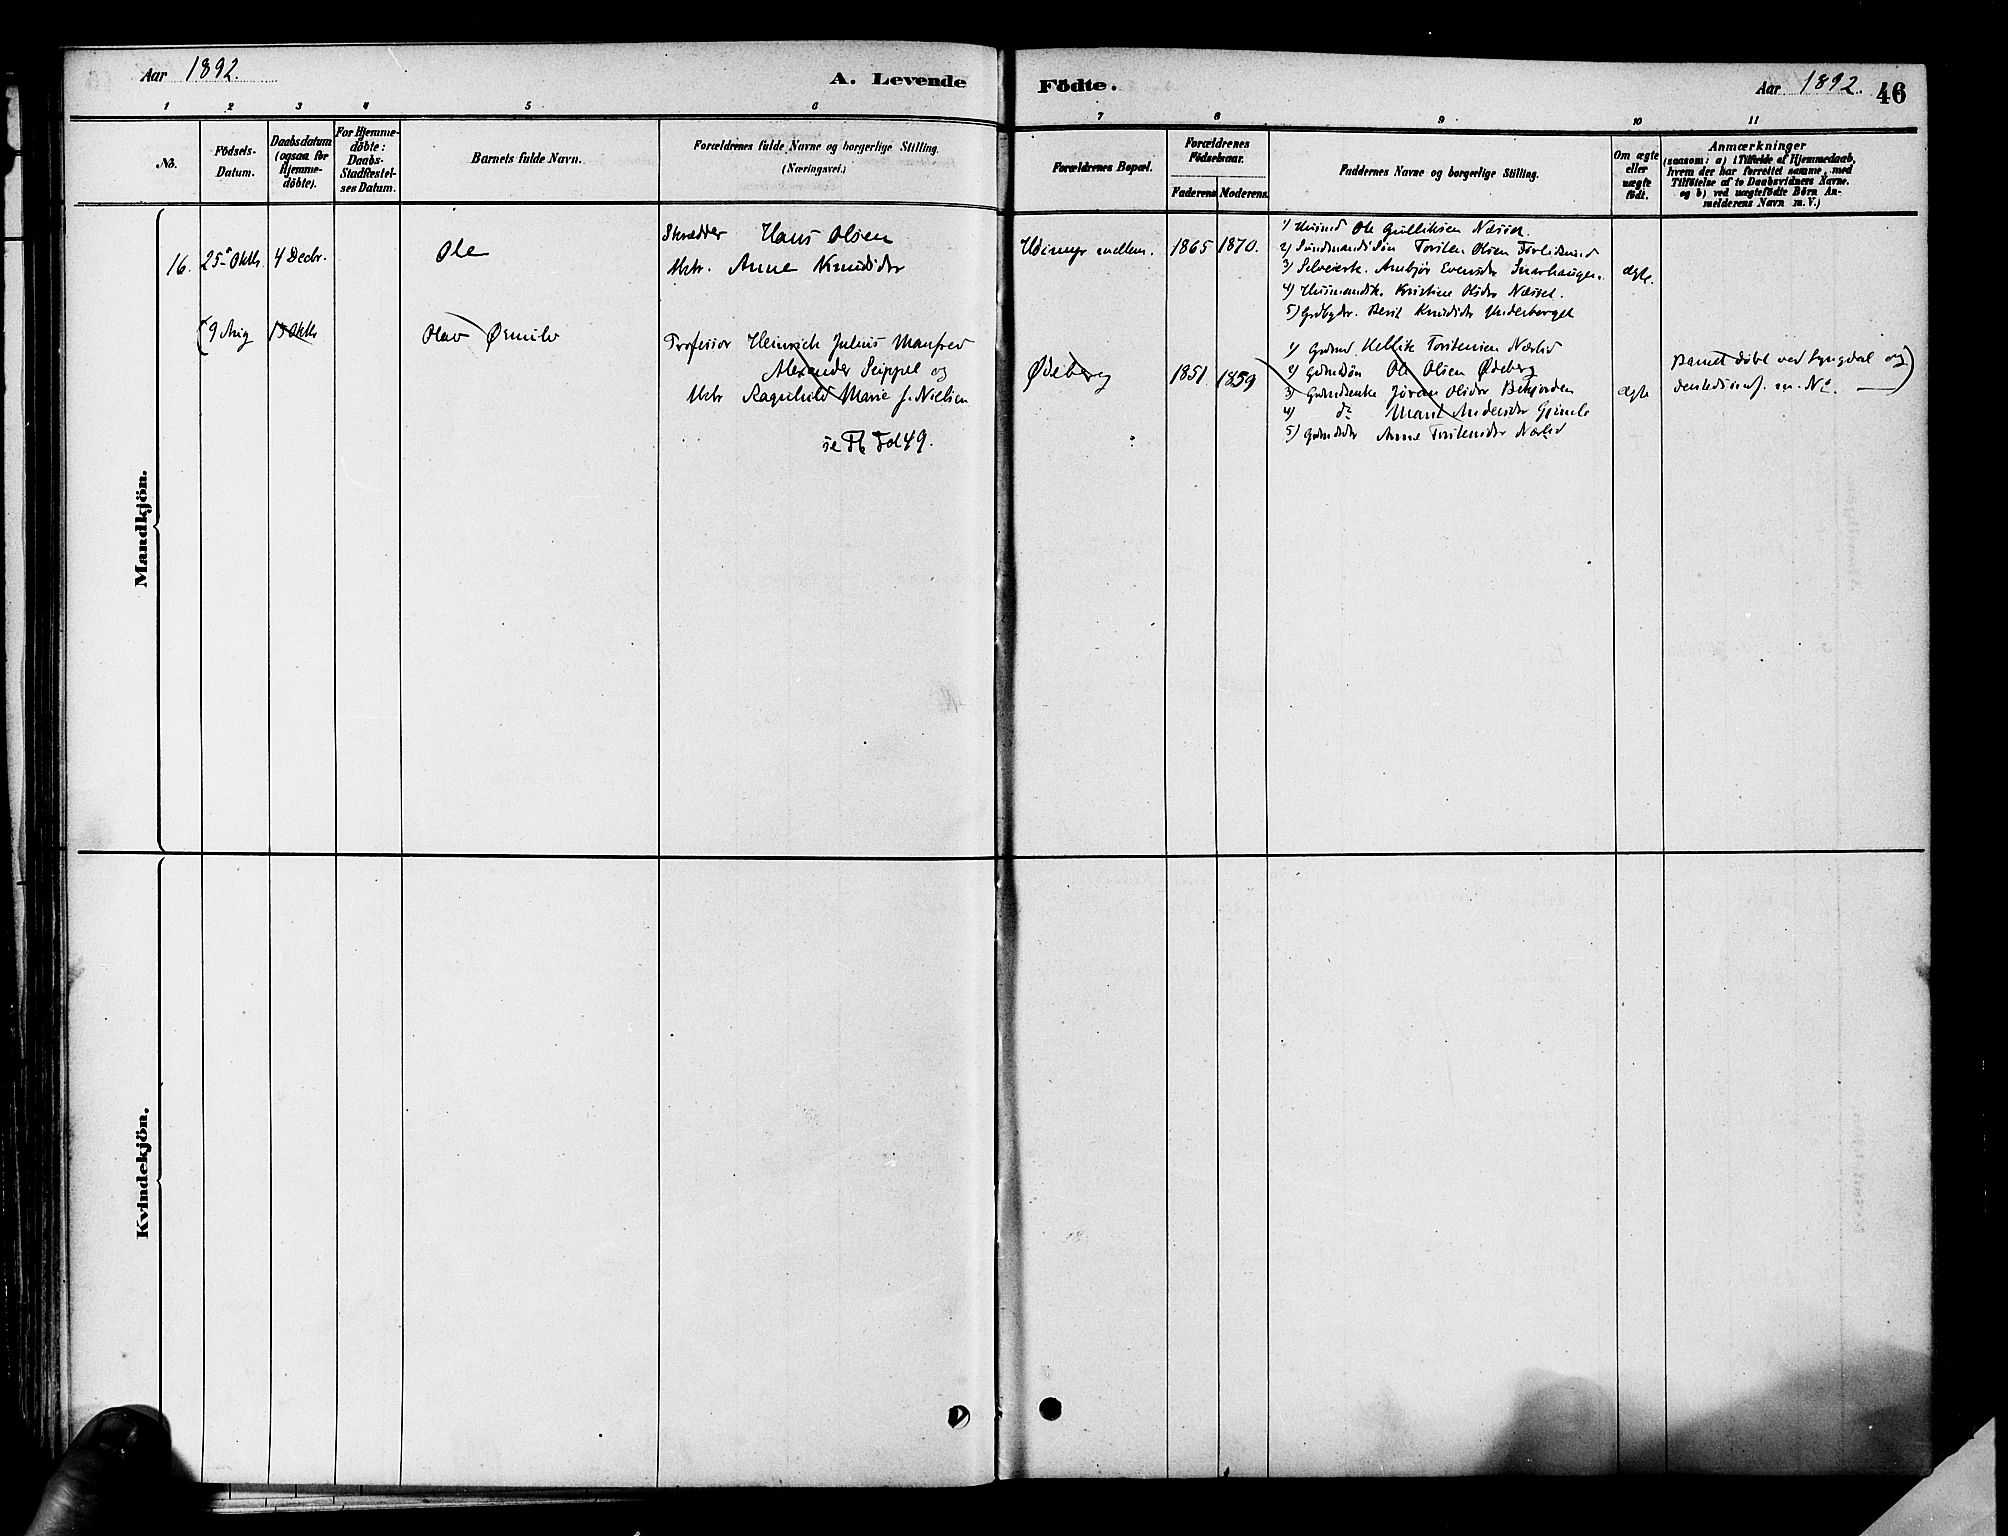 Aar 1892.
A. Levende Födte.
Aar 1892. 46
1 2 3 4 5 6 7 8 9 10 11
No.
Födsels-
Datum.
Daabsdatum
(ogsaa for
Hjemme-
döbte).
For Hjemme-
döbte:
Daabs-
Stadfæstel-
ses Datum.
Barnets fulde Navn.
Forældrenes fulde Navne og borgerlige Stilling.
(Næringsvei.)
Forældrenes Bopæl.
Forældrenes
Födselsaar.
Faderens Moderens.
Faddernes Navne og borgerlige Stilling.
Om ægte
eller
uægte
födt.
Anmærkninger
(saasom: a) i Tilfælde af Hjemmedaab,
hvem der har forrettet samme, med
Tilföielse af to Daabsvidners Navne.
og b) ved uægtefödte Börn An-
melderens Navn m. V.)
Mandkjön.
16. 25 Oktb. 4 Decbr.
Ole
Skrædder Hans Olsen
Anne Knudsdtr
mellem. 1865 1870.
1) Husmd Ole Gulliksen Næsset.
2) Torsten Olsen
3) Selveierk. Evensdtr
4) Husmandsk. Kristine Olsdtr Næsset.
5) Berit Knudsdtr Underberget
ægte.
(9 Aug 15 Oktb.
Olav
Professor Heinrich Julius Manfred
Alexander Seippel og
Ragnhild Marie J. Nielsen
se Fol 49.
Ødeberg 1851. 1859
1) Grdmd Hellik Torstensen Nærlid
2) Ole Olsen Ødeberg
3) Jøran Olsdtr
4) do Marit Andersdtr
5) Anne Torstensdtr Nærlid
ægte
Barnet døbt ved Lyngdal og
No. —)
Kvindekjön.